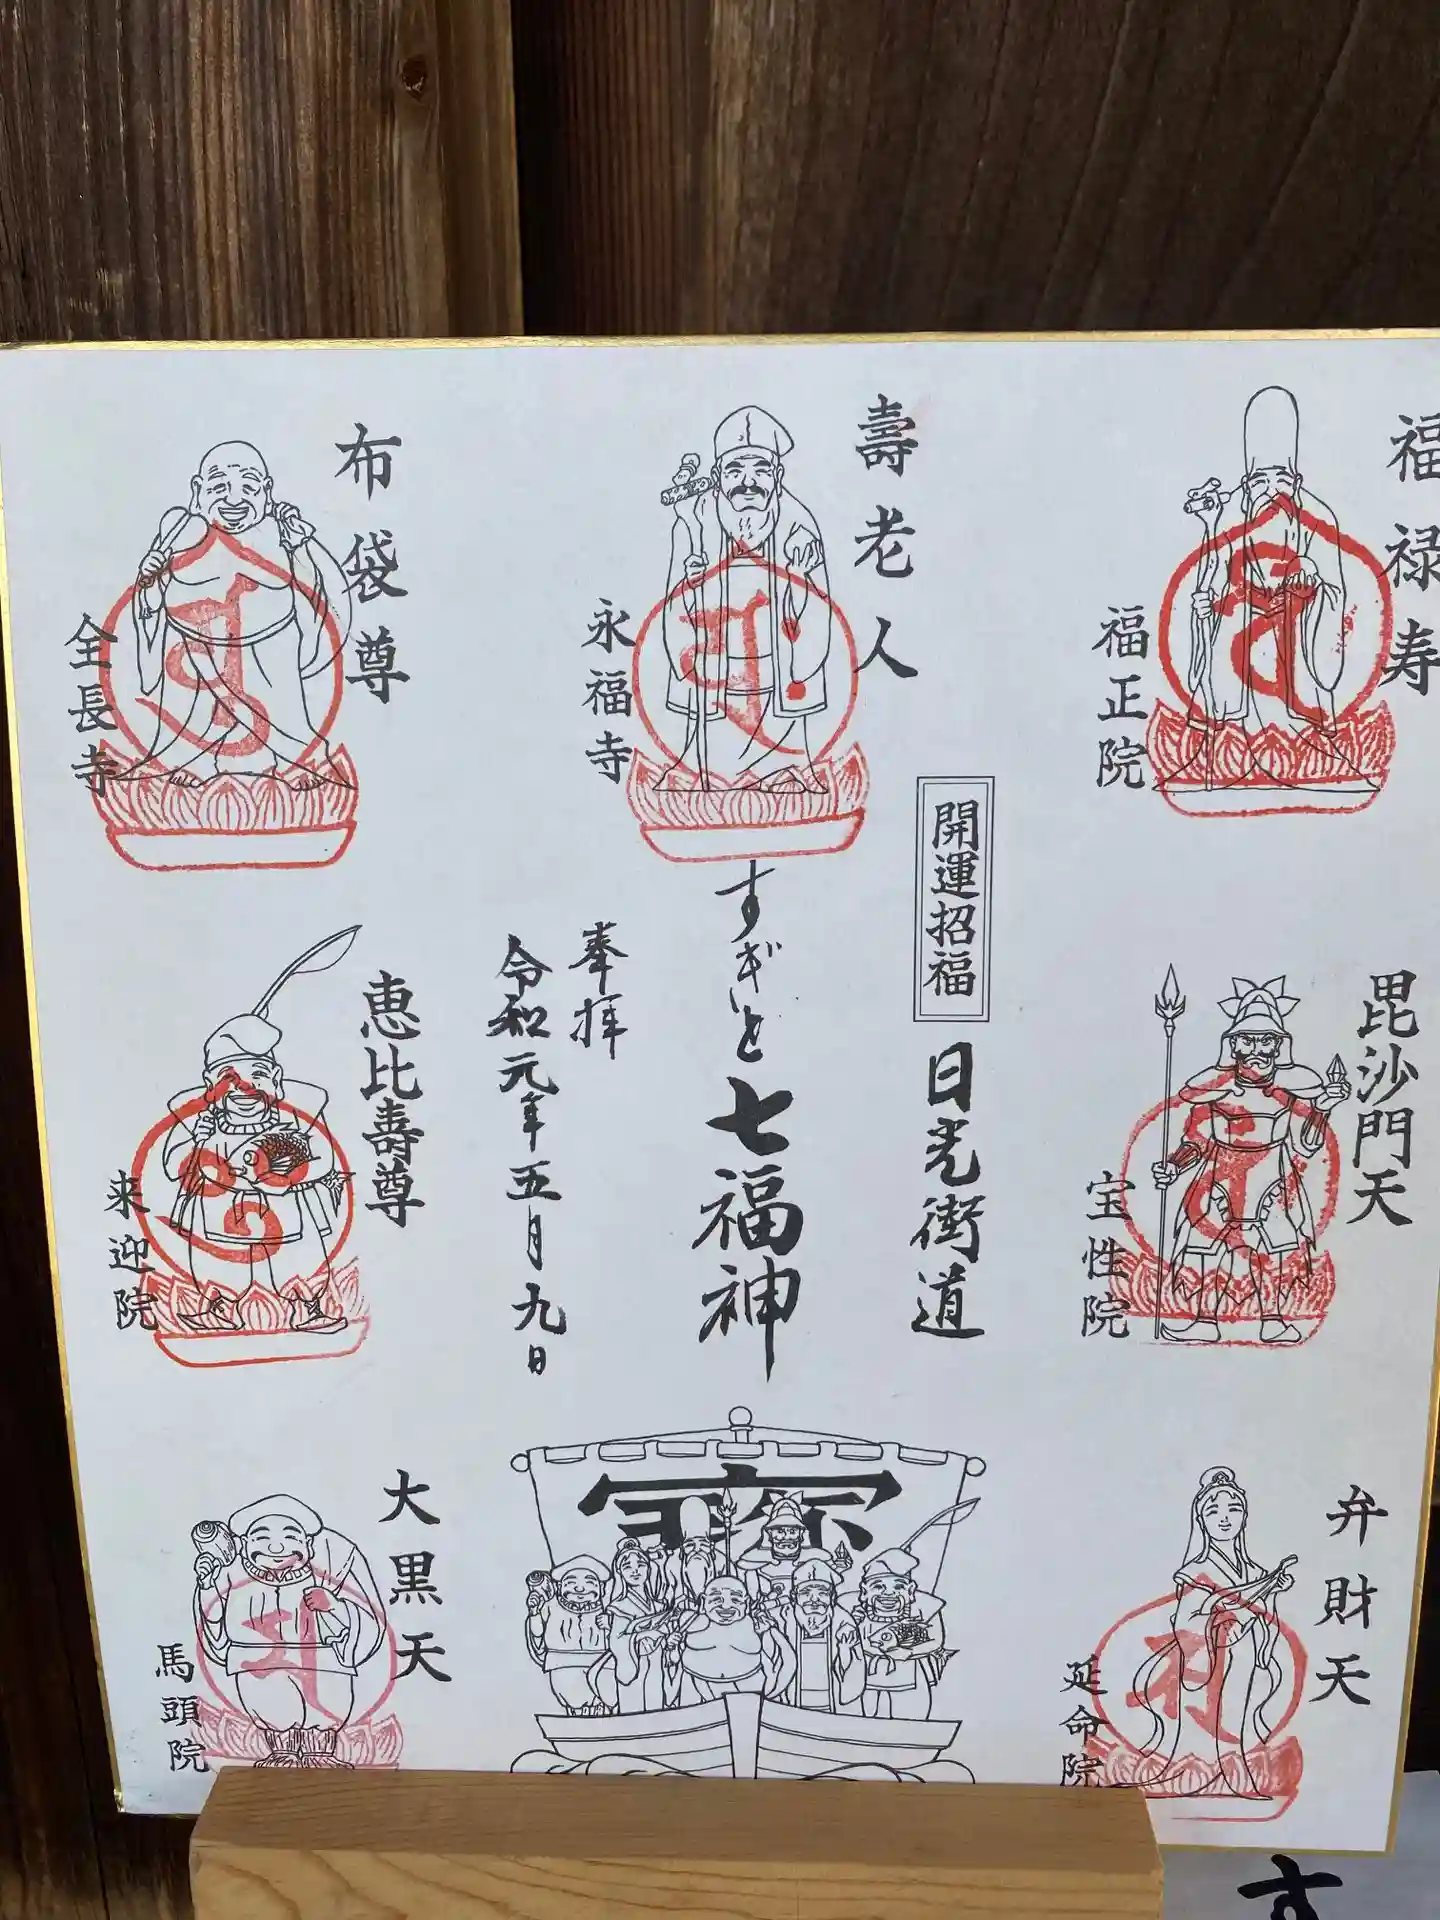 福禄寿
福正院
壽老人
永福寺
布袋尊
全長寺
開運招福
日光街道
すぎと七福神
奉拝
令和元年五月九日
毘沙門天
宝性院
恵比寿尊
来迎院
弁財天
延命院
大黒天
馬頭院
す